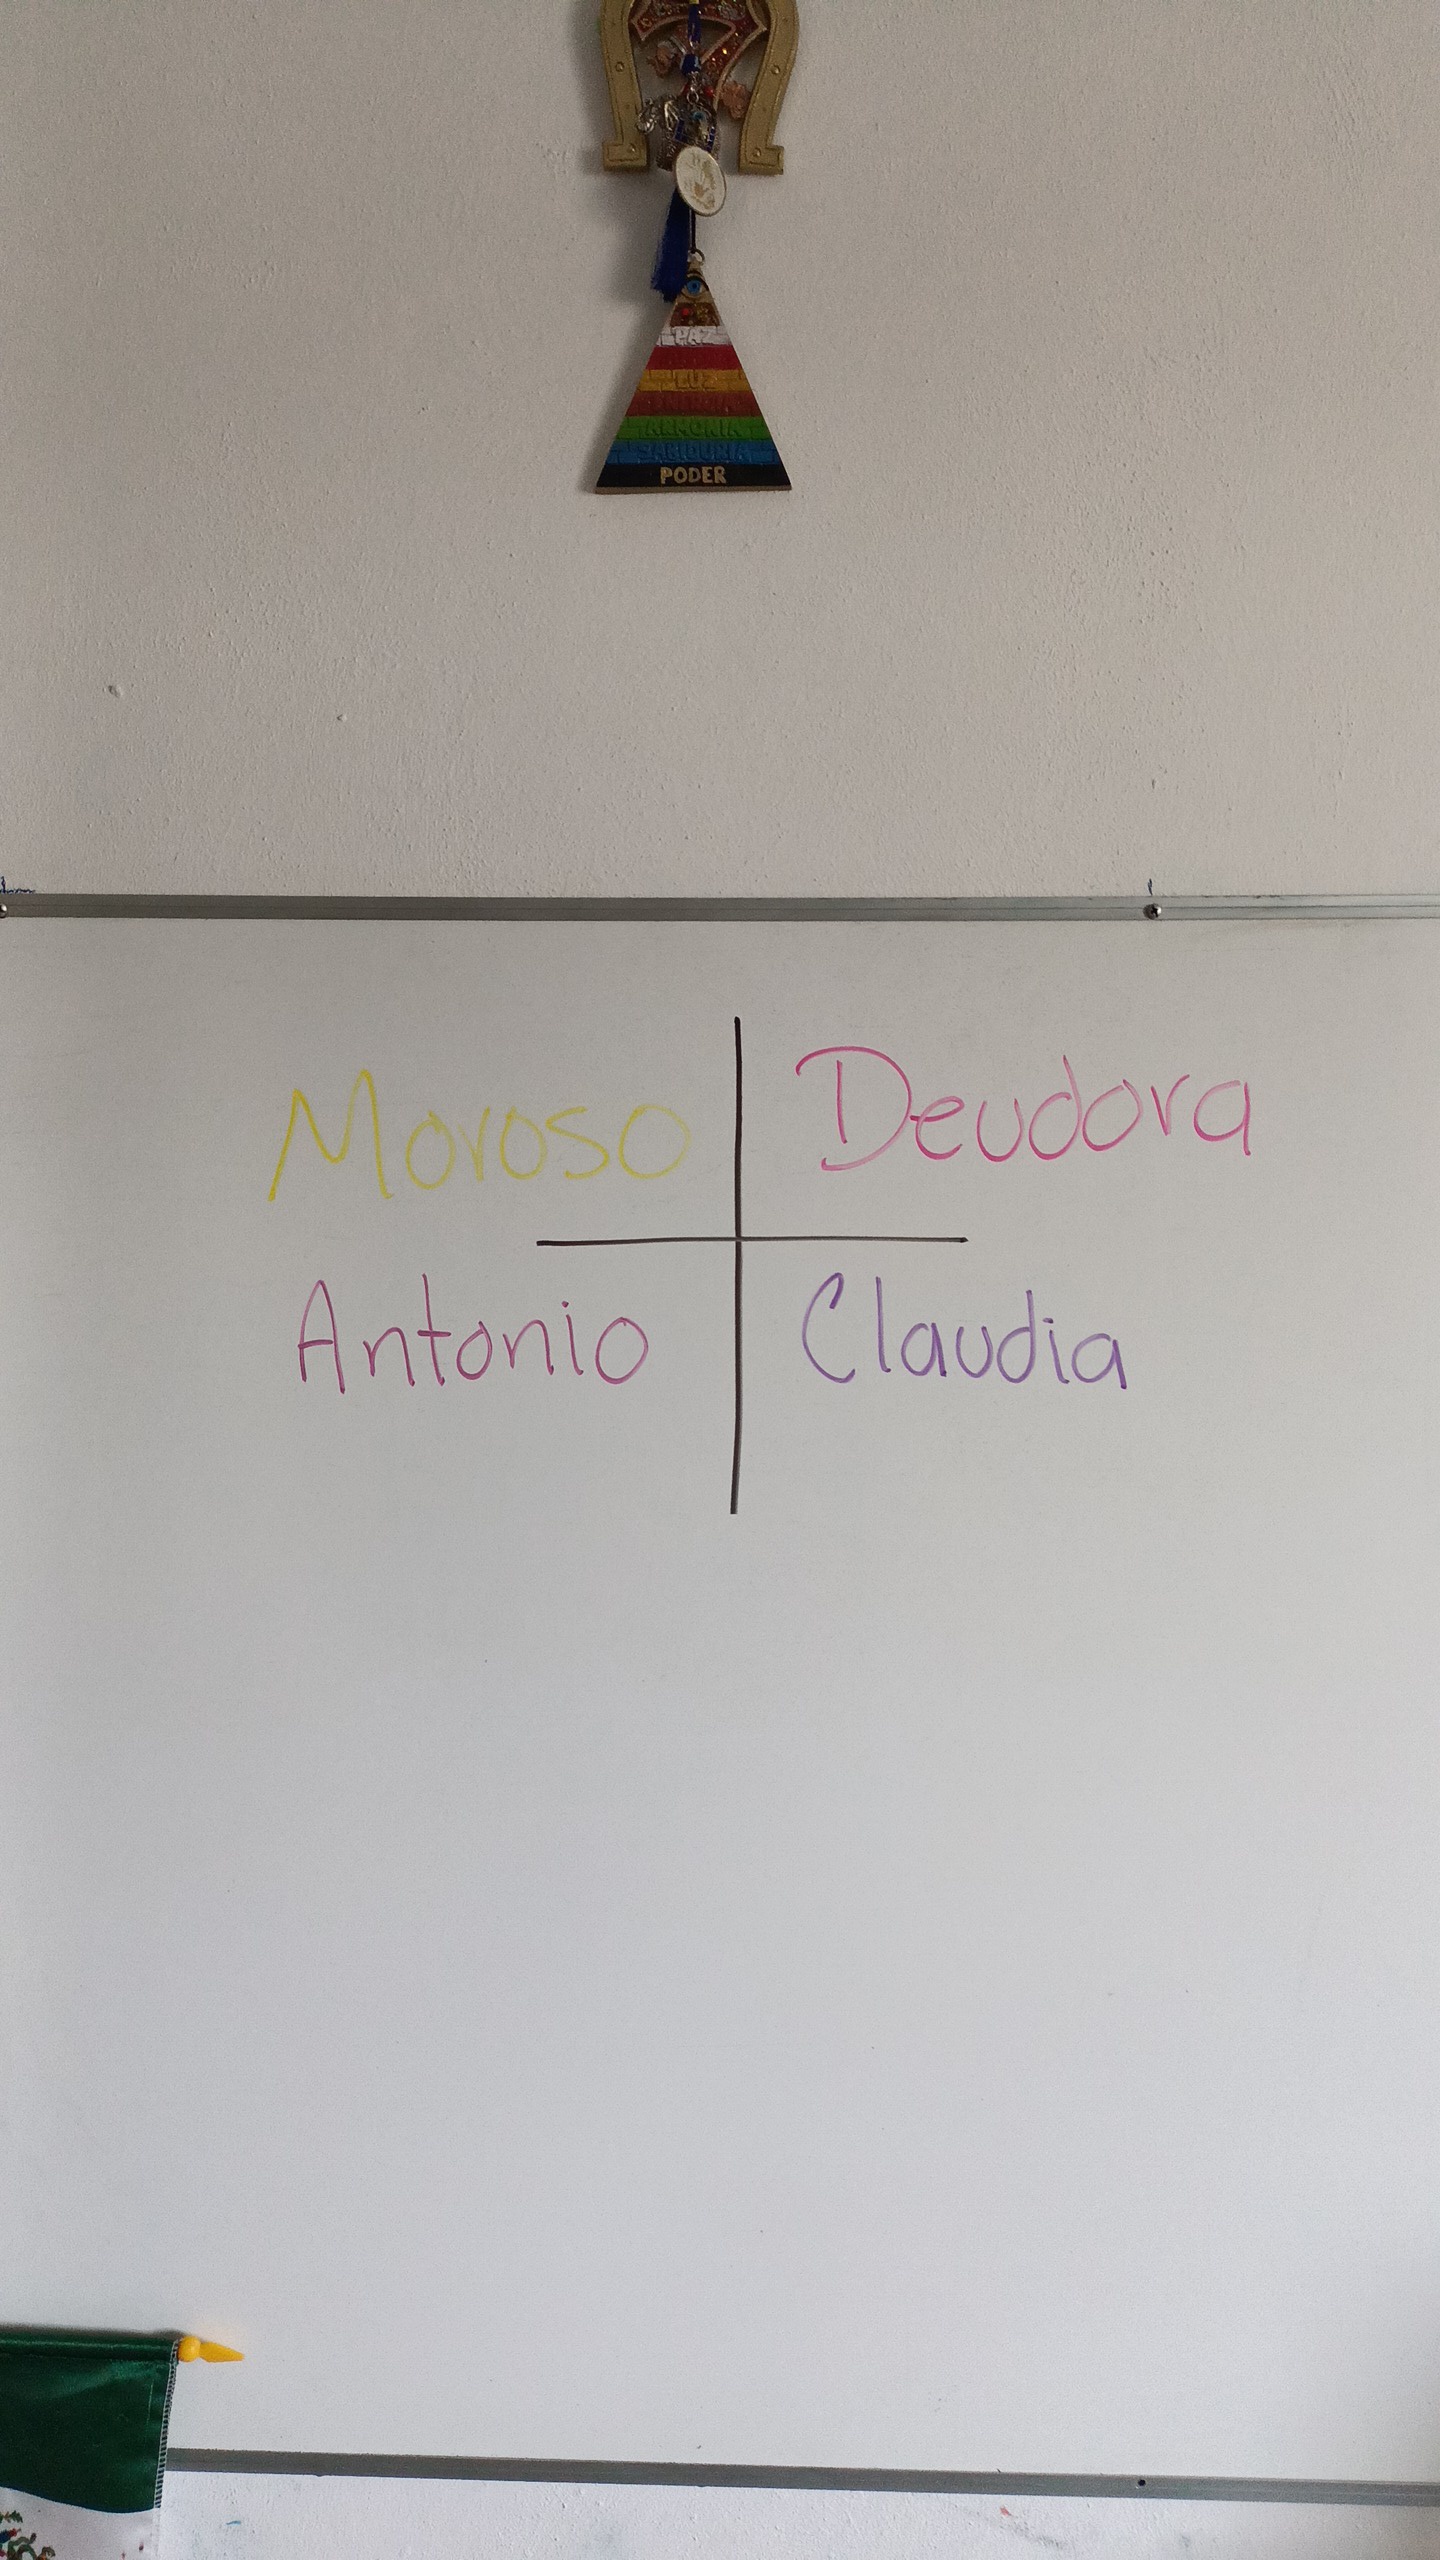 PAZ
LUZ
ARMONIA
SABIDURIA
PODER
Moroso Deudora
Antonio Claudia